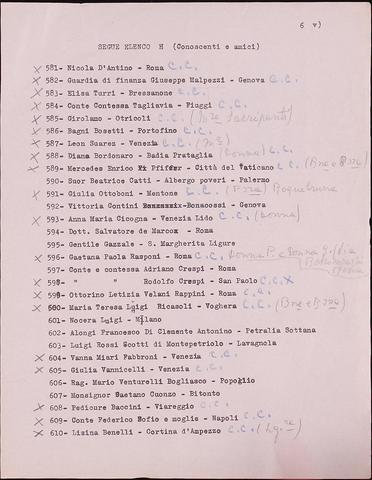 6 v)
SEGUE ELENCO H (Conoscenti e amici)
581- Nicola D'Antino - Roma C.C.
582- Guardia di finanza Giuseppe Malpezzi - Genova C.C.
583- Elisa Turri - Bressanone C.C.
584- Conte Contessa Tagliavia - Fiuggi C.C.
585- Girolamo - Otricoli C.C.
586- Bagni Bosetti - Portofino C.C.
587- Leon Suarez - Venezia C.C.
588- Diama Bordonaro - Badia Prataglia (donna) C.C.
589- Mercedes Enrico Pfiffer - Città del Vaticano C.C.
590- Suor Beatrice Catti - Albergo poveri - Palermo
591- Giulia Ottoboni - Mentone C.C. Roquebrune
592- Vittoria Contini -Bonacossi - Genova
593- Anna Maria Cicogna - Venezia Lido C.C. (donna)
594- Dott. Salvatore de Marco - Roma
595- Gentile Gazzale - S. Margherita Ligure
596- Gaetana Paola Rasponi - Roma C.C. Donna P. e Donna
597- Conte e contessa Adriano Crespi - Roma
598- " " Rodolfo Crespi - San Paolo C.C.X
599- Ottorino Letizia Velani Rappini - Roma C.C.
600- Maria Teresa Luigi Ricasoli - Voghera C.C.
601- Nocera Luigi - Milano
602- Alongi Francesco Di Clemente Antonino - Petralia Sottana
603- Luigi Rossi Scotti di Montepetriolo - Lavagnola
604- Vanna Miari Fabbroni - Venezia C.C.
605- Giulia Vannicelli - Venezia C.C.
606- Rag. Mario Venturelli Bogliasco - Popoglio
607- Monsignor Gaetano Cuonzo - Bitonto
608- Pedicure Baccini - Viareggio C.C.
609- Conte Federico Bofio e moglie - Napoli C.C.
610- Lizina Benelli - Cortina d'Ampezzo C.C.